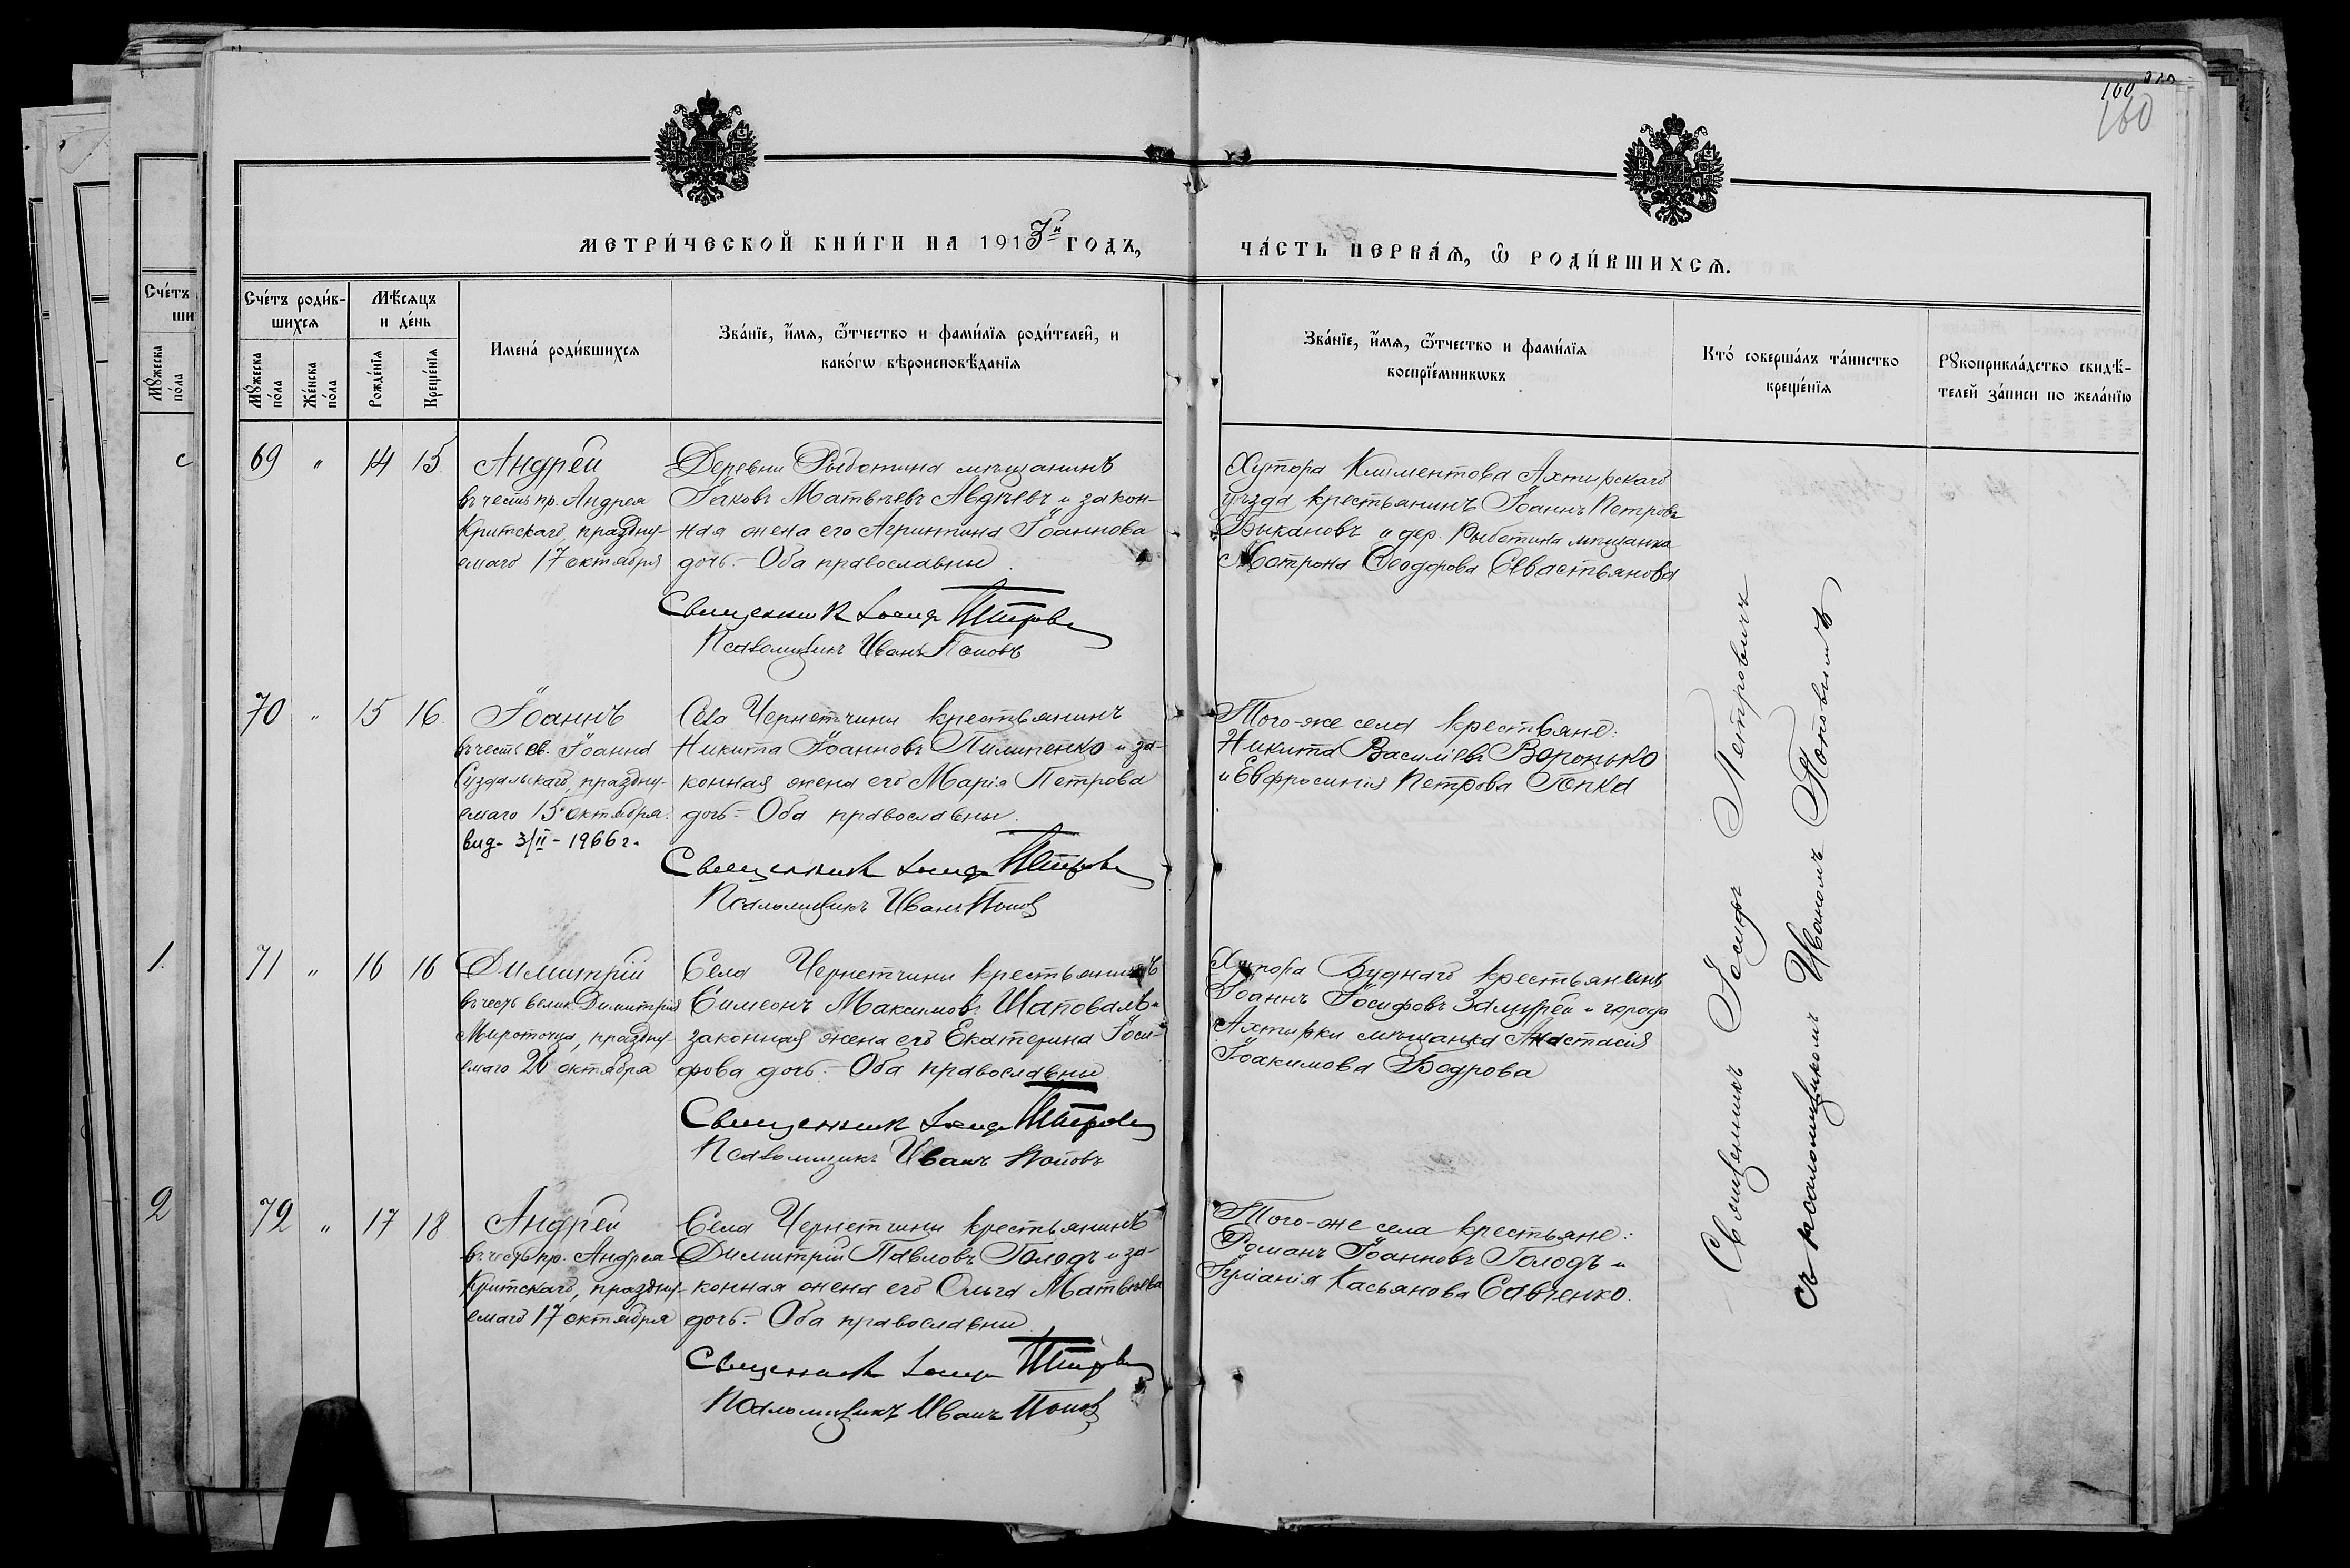 160
160
МЕТРИ́ЧЕСКОЙ КНИ́ГИ НА 1913й ГОДЪ,
ЧА́СТЬ ПЕРВА́Ѧ, Ѽ РОДИ́ВШИХСѦ.
Сче́тъ роди́вшихсѧ
Мѣ́сѧцъ и де́нь
Имена́ роди́вшихсѧ
Зва́нїе, и҆́мѧ, ѻ҆́тчество и фами́лїѧ роди́телей, и
како́гѡ вѣроисповѣ́данїѧ
Зва́нїе, и҆́мѧ, ѻ҆́тчество и фами́лїѧ
воспрїе́мникѡвъ
Кто́ соверша́лъ та́инство
креще́нїѧ
Рꙋкоприкла́дство свидѣ́-
телей за́писи по жела́нїю
Мꙋ́жеска по́ла
Же́нска по́ла
Рожде́нїѧ
Креще́нїѧ
69 " 14 15 Андрей
въ честь пр. Андрея
Критскаго, праздну-
емаго 17 октября
Деревни Рыботина мѣщанинъ
Іаковъ Матвѣевъ Авдѣевъ и закон-
ная жена его Агриппина Іоаннова
дочь. - Оба православны.
Священникъ Іосифъ Петровъ
Псаломщикъ Иванъ Поповъ
Хутора Климентова Ахтырскаго
уѣзда крестьянинъ Іоаннъ Петровъ
Зыкановъ и дер. Рыботина мѣщанка
Мотрона Ѳеодорова Севастьянова
70 " 15 16 Іоаннъ
въ честь св. Іоанна
Суздальскаго, праздну-
емаго 15 октября.
вид. 3/II - 1966 г.
Села Чернетчины крестьянинъ
Никита Іоанновъ Пилипенко и за-
конная жена его Марія Петрова
дочь. - Оба православны.
Священникъ Іосифъ Петровъ
Псаломщикъ Иванъ Поповъ
Того-же села крестьяне:
Никита Василіевъ Воронько
и Евфросинія Петрова Гопка
71 " 16 16 Димитрій
въ честь велик. Димитрія
Мироточца, праздну-
емаго 26 октября
Села Чернетчины крестьянинъ
Симеонъ Максимовъ Шаповалъ и
законная жена его Екатерина Іоси-
фова дочь. - Оба православны
Священникъ Іосифъ Петровъ
Псаломщикъ Иванъ Поповъ
Хутора Буднаго крестьянинъ
Іоаннъ Іосифовъ Замурей и города
Ахтырки мѣщанка Анастасія
Іоакимова Бодрова
72 " 17 18 Андрей
въ честь пр. Андрея
Критскаго, праздну-
емаго 17 октября
Села Чернетчины крестьянинъ
Димитрій Павловъ Голодъ и за-
конная жена его Ольга Матвѣева
дочь. - Оба православны.
Священникъ Іосифъ Петровъ
Псаломщикъ Иванъ Поповъ
Того-же села крестьяне:
Романъ Іоанновъ Голодъ и
Іуліанія Касьянова Савченко.
Священникъ Іосифъ Петровичъ
съ псаломщикомъ Иваномъ Поповымъ
Сче́тъ
ши
Мꙋ́жеска по́ла
1.
2